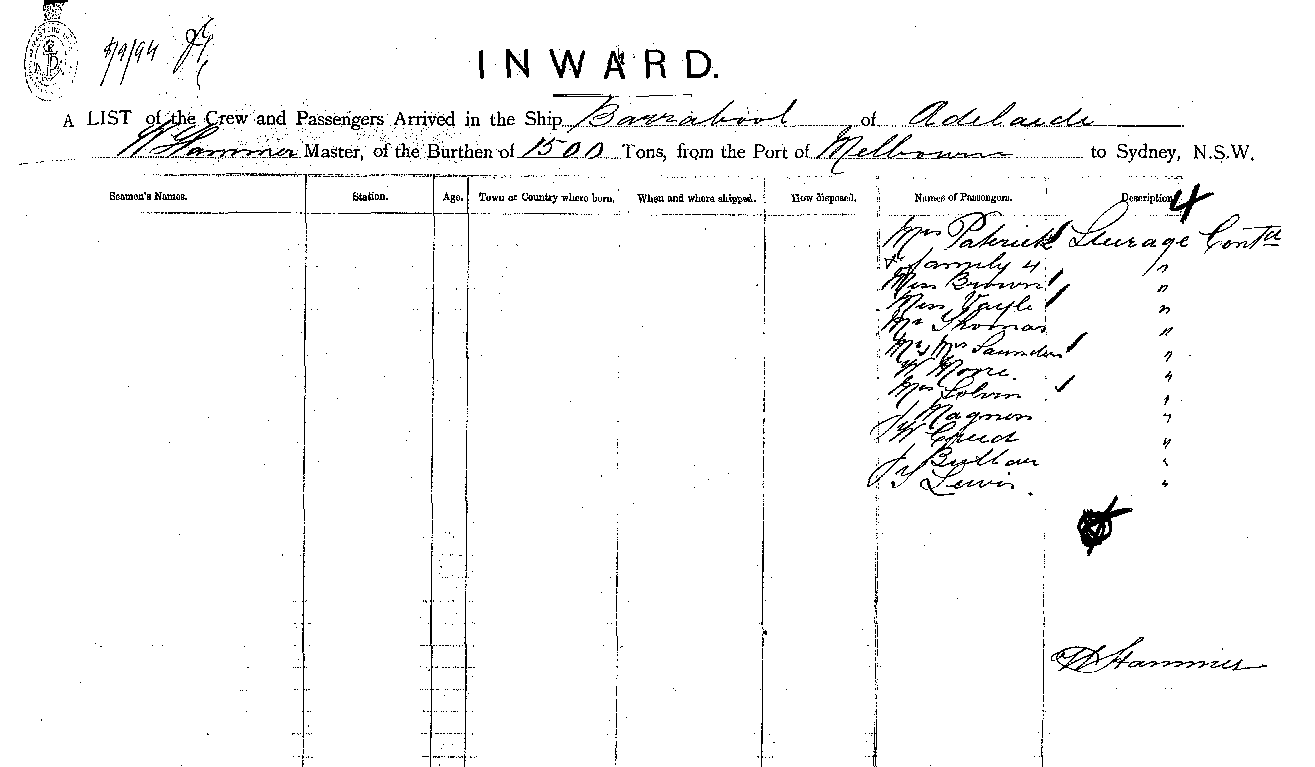 5/9/94
INWARD.
A LIST of the Crew and Passengers Arrived in the Ship Barrabool of Adelaide
W Hammer Master, of the Burthen of 1500 Tons, from the Port of Melbourne to Sydney, N.S.W.
Seamen's Names. Station. Age. Town or Country where born. When and where shipped. How disposed. Names of Passengers. Description. 4
Mrs Patrick Steerage Contd
+ family 4 "
Miss Brown "
Miss "
Mr Thomas "
Mr Mrs Saunders "
W Moore "
Mrs Colvin "
J Magnus "
W "
J Butler "
J Lewis "
W Hammer